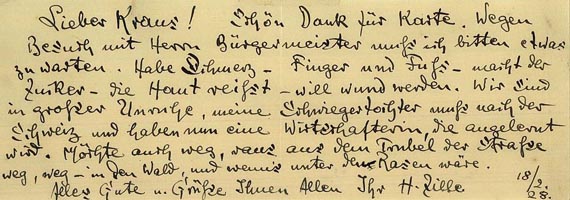 Lieber Kraus! Schön Dank für Karte. Wegen
Besuch mit Herrn Bürgermeister muß ich bitten etwas
zu warten. Habe Schmerz - Finger und Fuß - macht der
Zucker - die Haut reißt - will wund werden. Wir sind
in großer Unruhe, meine Schwiegertochter muß nach der
Schweiz und haben nun eine Wirtschafterin, die angelernt
wird. Möchte auch weg, raus aus dem Trubel der Straße
weg, weg - in den Wald, und wenns unter dem Rasen wäre.
Alles Gute u. Grüße Ihnen Allen Ihr H. Zille
18/2. 28.